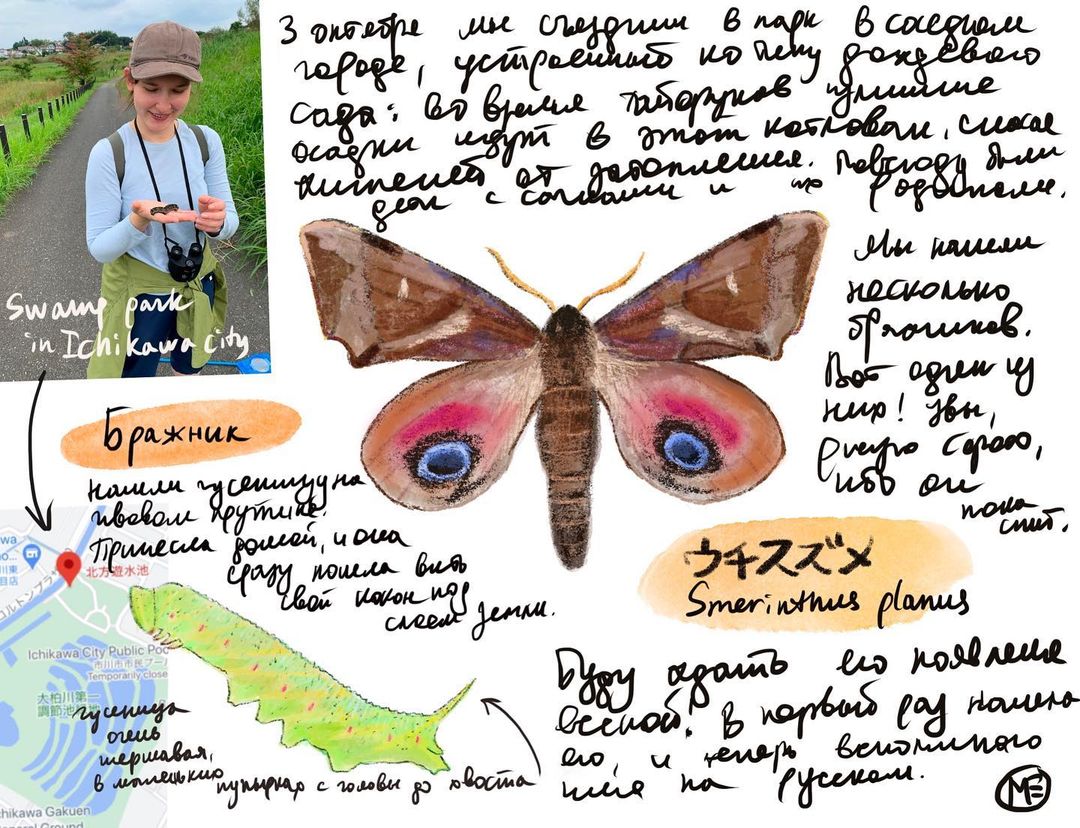 3 октября мы съездили в парк в соседнем
городе, устроенный по типу дождевого
сада: во время тайфунов лишние
осадки идут в этот котлован, спасая
жителей от затопления. Повсюду были
дети с сачками и их родители.
Swamp park
in Ichikawa city
Мы нашли
несколько
бражников.
Вот один из
них! Увы,
что он
пока
спит.
Бражник
нашли гусеницу на
ивовом прутике.
Принесла домой, и она
сразу пошла вить
свой кокон под
слоем земли.
ウチスズメ
Smerinthus planus
Буду ждать его появления
весной. В первый раз нашла
его, и теперь вспомнила
на русском.
гусеница
очень
шершавая,
в маленьких пупырках с головы до хвоста
ME
北方遊水池
コルトンプラ
Ichikawa City Public Poo
市川市市民プー
Temporarily close
大柏川第一
調節池
chikawa Gakuen